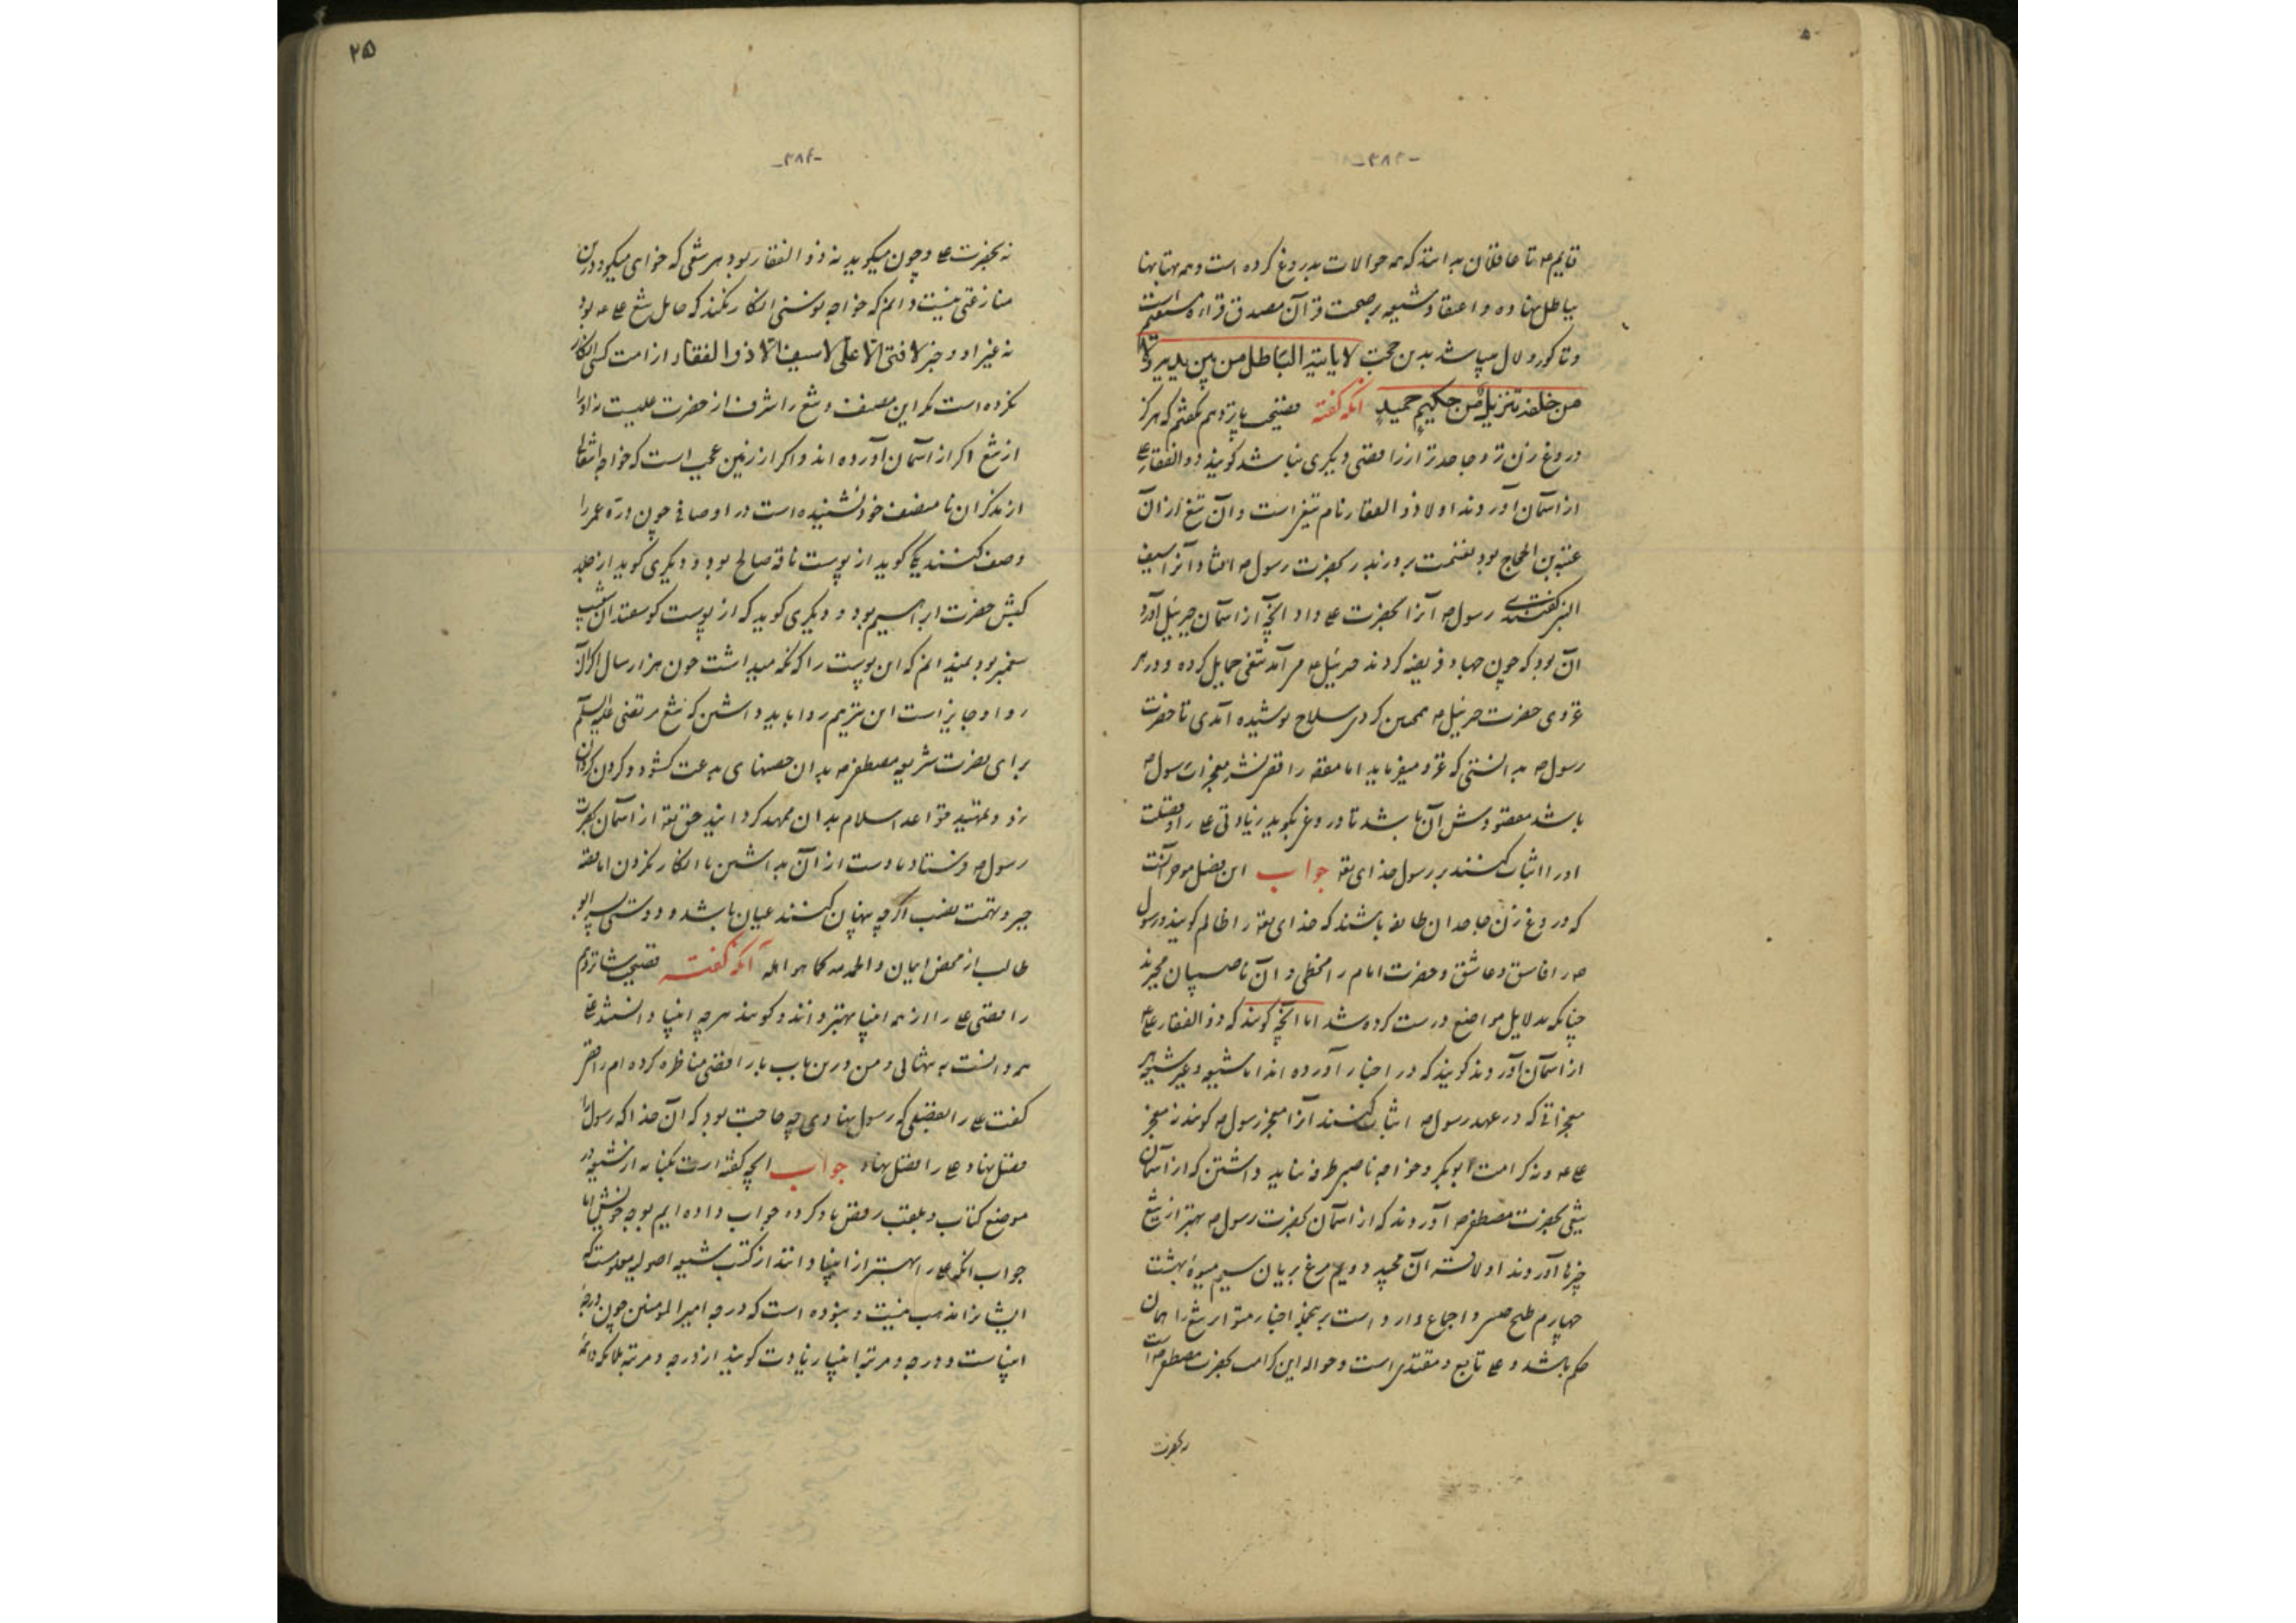 -۳۸۳-
قایم ۴ تا عاقلان بدانند که همه حوالات بدروغ کرده است و همه بهتانها
بباطل نهاده و اعتقاد شیعه بر صحت قرآن مصدق قراءه مستقیم است
و تا کور و لال میباشد بدین حجت لا یاتیه الباطل من بین یدیه ولا
من خلفه تنزیل من حکیم حمید آنکه گفته فضیحت پانزدهم گفتم که هرگز
دروغ زن تر و جاحدتر از رافضی دیگری نباشد گویند ذو الفقار ع
از آسمان آوردند اولا ذو الفقار نام تیغیست و آن تیغ از آن
عتبه بن الحجاج بود بغنیمت بروز بدر بحضرت رسول ص افتاد و آنرا سیف
گفتندی رسول ص آنرا بحضرت ع داد آنچه از آسمان جبرئیل آورد
آن بود که چون جهاد فریضه کردند جبرئیل ۴ مر آمد تیغی حمایل کرده و در هر
غزوی حضرت جبرئیل ۴ همچنین کردی سلاح پوشیده آمدی تا حضرت
رسول ص بدانستی که غزو میفرماید اما معقه رافضی نشر معجزات رسول ص
باشد مقصودش آن باشد تا دروغی بگوید زیادتی ع را و فضیلت
او را اثبات کنند بر رسول خدای تعه جواب این فصل موجز آنست
که دروغ زن جاحد آن طایفه باشند که خدای تعه را ظالم گویند و رسول
ص را فاسق و عاشق و حضرت امام را مخطی و آن ناصبیان مجبرند
چنانکه بدلایل مواضع درست کرده شد اما آنچه گویند که ذو الفقار ع
از آسمان آوردند گویند که در اخبار آورده اند اما شیعه و غیر شیعه هر
معجزاتی که در عهد رسول ص اثبات کنند آنرا معجز رسول ص گویند نه معجز
ع ۴ و نه کرامت ابوبکر و خواجه ناصبی طرفه نباید داشتن که از آسمان
تیغی بحضرت مصطفی ص آوردند که از آسمان بحضرت رسول ص بهتر از تیغ
چیزها آوردند اولا قرآن مجید دویم مرغ بریان سیم میوهٔ بهشت
چهارم و اجماع وارد است برینجمله اخبار متواتر تیغ را همان
حکم باشد و ع تابع و مقتدی است و حواله این کرامت بحضرت مصطفی ص است
نه بحضرت
۲۵
-۳۸۴-
نه بحضرت ع و چون میگوید نه ذو الفقار بود هر شقی که خوای میگو درین
منازعتی نیست دانم که خواجه نوسنی انکار نکند که حامل تیغ ع ۴ بود
نه غیر او و خبر لا فتی الا علی لا سیف الا ذو الفقار از امت کسی انکار
نکرده است مگر این مصنف و تیغ را شرف از حضرت علیست نه او را
از تیغ اگر از آسمان آورده اند و اگر از زمین عجب است که خواجه انتقالی
از مذکران نامنصف خود نشنیده است در اوصافی چون دره عمر را
وصف کنند یکی گوید از پوست ناقه صالح بود و دیگری گوید از جلد
کبش حضرت ابراهیم بود و دیگری گوید که از پوست گوسفندان شعیب
پیغمبر بود نمیدانم که این پوست را که نگه میداشت چون هزار سال اگر آن
روا و جایز است این نیز هم روا باید داشتن که تیغ مرتضی علیه السلم
برای نصرت شریعه مصطفی ص بدان حصنهای بدعت گشود و گردن گردان
زد و تمهید قواعد اسلام بدان ممهد گردانید حق تعه از آسمان بحضرت
رسول ص فرستاد تا دست از آن بداشتن یا انکار نکردن اما بقه
جبر و تهمت نصب اگر چه پنهان کنند عیان باشد و دوستی پسر ابو
طالب از محض ایمان و الحمد لله کما هو اهله آنکه گفته فضیحت شانزدهم
رافضی ع را از همه انبیا بهتر داند و گویند هر چه انبیا دانستند ع
همه دانست به تنهائی و من درین باب با رافضی مناظره کرده ام رافضی
گفت ع را بعقبی که رسول نهادی چه حاجت بود که آن خدا که رسول را
فضل نهاد ع را فضل نهاد جواب آنچه گفته است بکنایه از شیعه در
موضع کتاب و بلقب رفض یاد کرده جواب داده ایم بوجه خویش اما
جواب آنکه ع را بهتر از انبیا دانند از کتب شیعه اصولیه معلومست که
ایشانرا مذهب نیست و نبوده است که درجه امیر المومنین چون درجهٔ
انبیاست و درجه و مرتبهٔ انبیا زیادت گویند از درجه و مرتبه ملائکه و ائمه